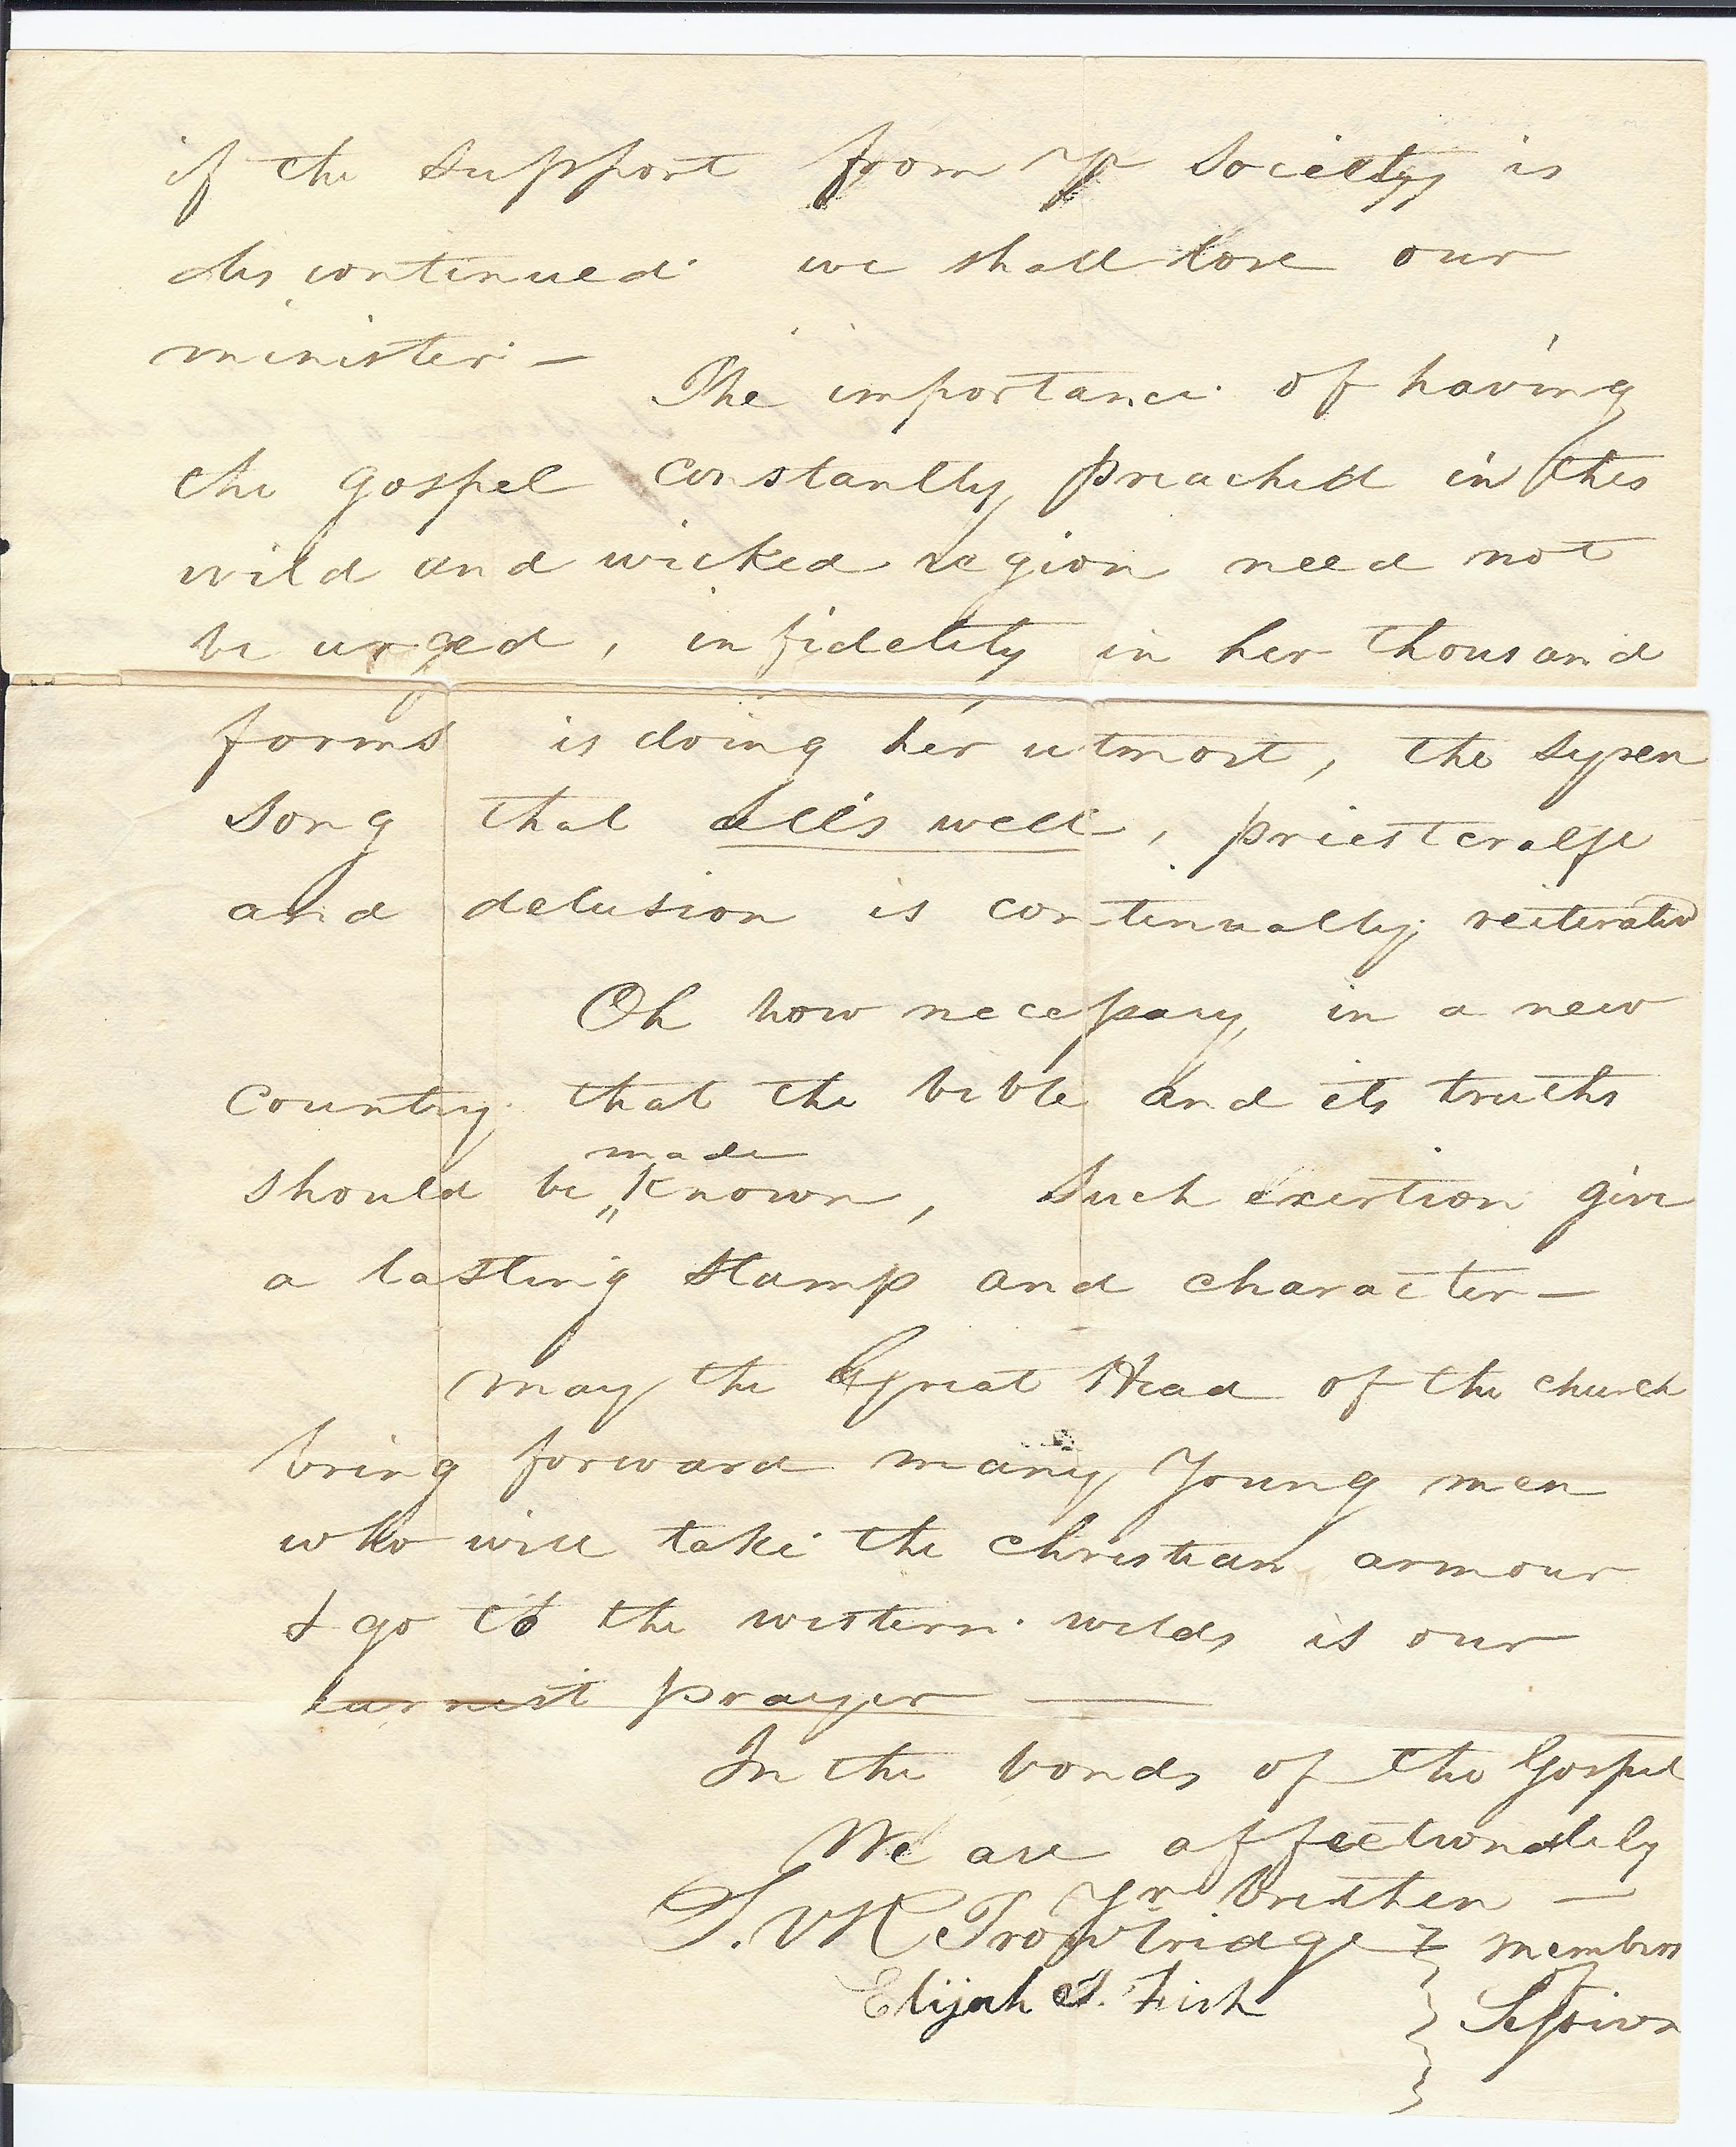 if the support from yr Society is
discontinued we shall lose our
minister —
The importance of having
the gospel constantly preached in this
wild and wicked region need not
be urged, infidelity in her thousand
forms is doing her utmost, the syren
song that all's well, priestcraft
and delusion is continually reiterated
Oh how necessary in a new
Country that the bible and its truths
made
should be " Known, Such exertion give
a lasting stamp and character —
may the Great Head of the church
bring forward many Young men
who will take the christian armour
& go to the western wilds is our
earnest prayer —
In the bonds of the Gospel
We are affectionately
Yr brethren —
S. VR Trowbridge } members
Elijah S. Fish } Session